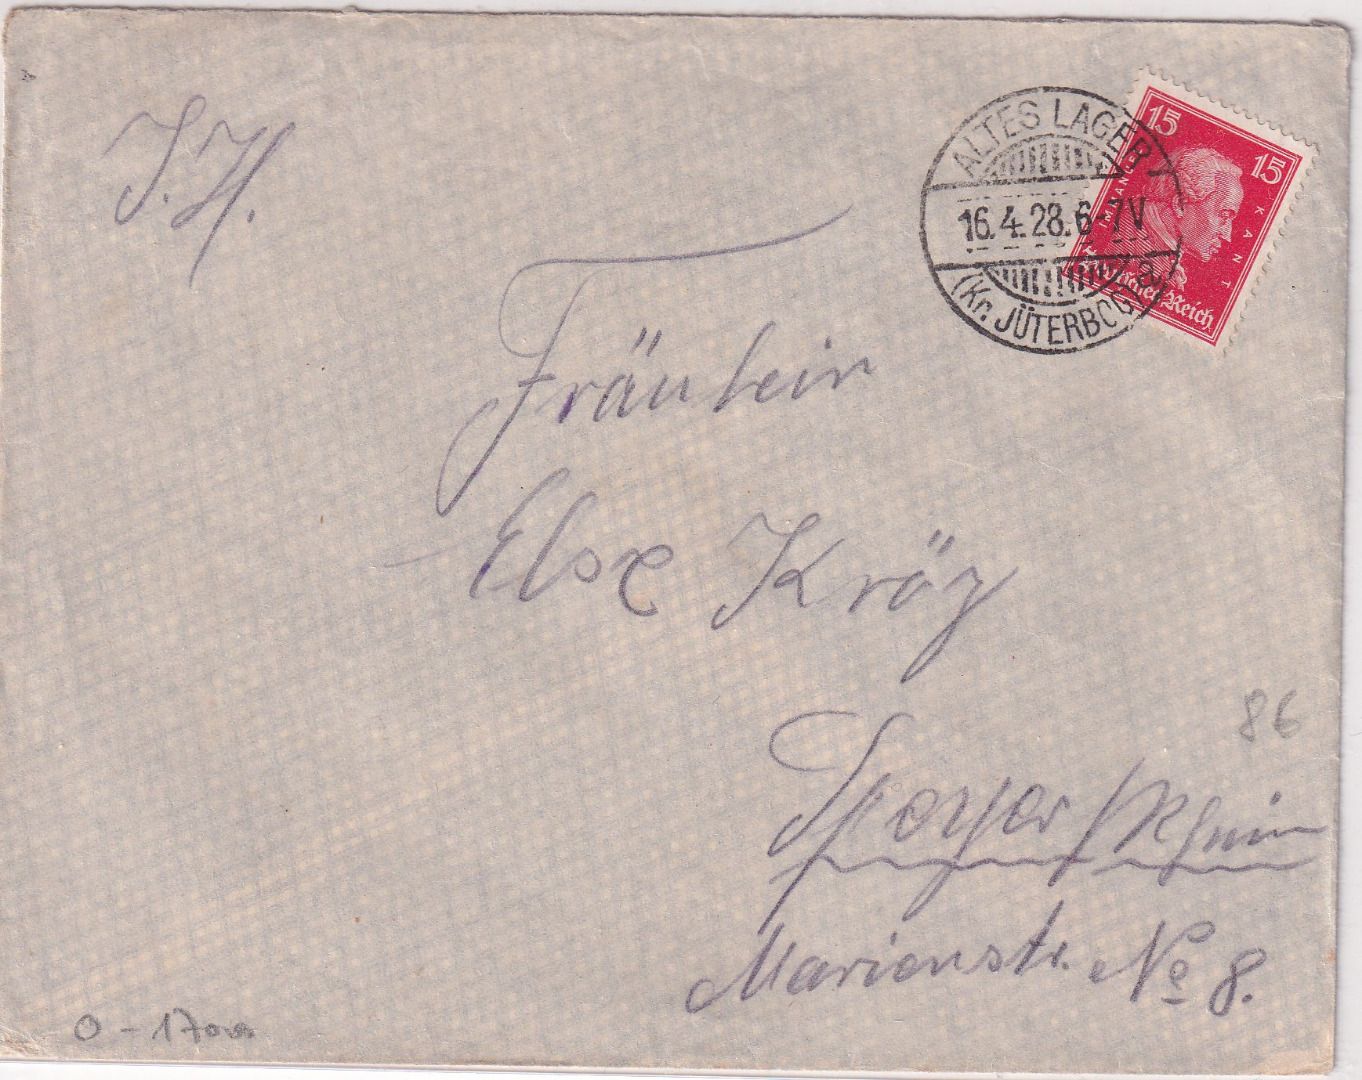 J. H.
ALTES LAGER
16.4.28.6-7V
(Kr. JÜTERBOG)
15 15
IMMANUEL KANT
Deutsches Reich
Fräulein
Else Kröz
Speyer / Rhein
Marienstr. No 8.
86
0-1700